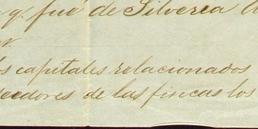 y. fué de Silverea
os capitales relacionados
eedores de las fincas los